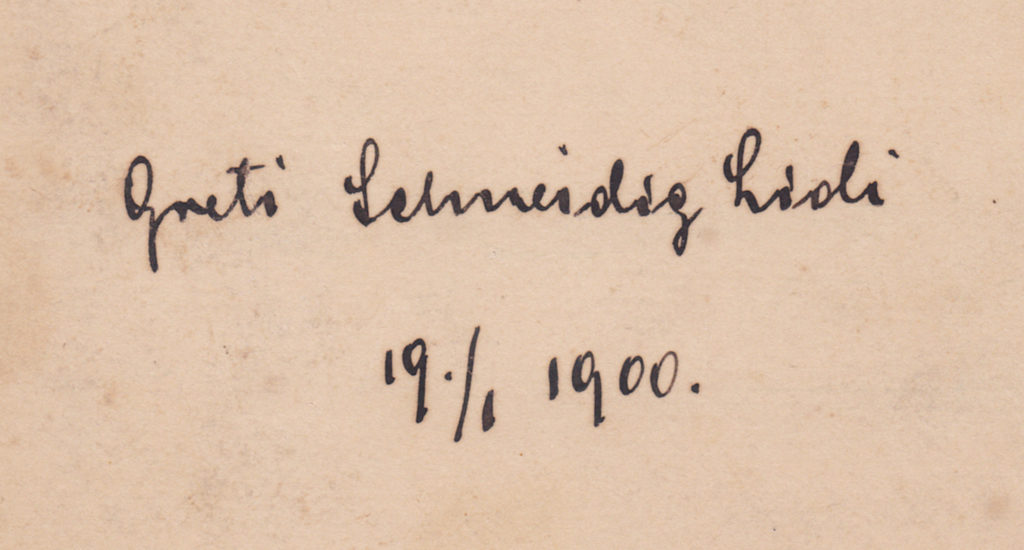 Greti Schmeidig Lidi
19./1 1900.